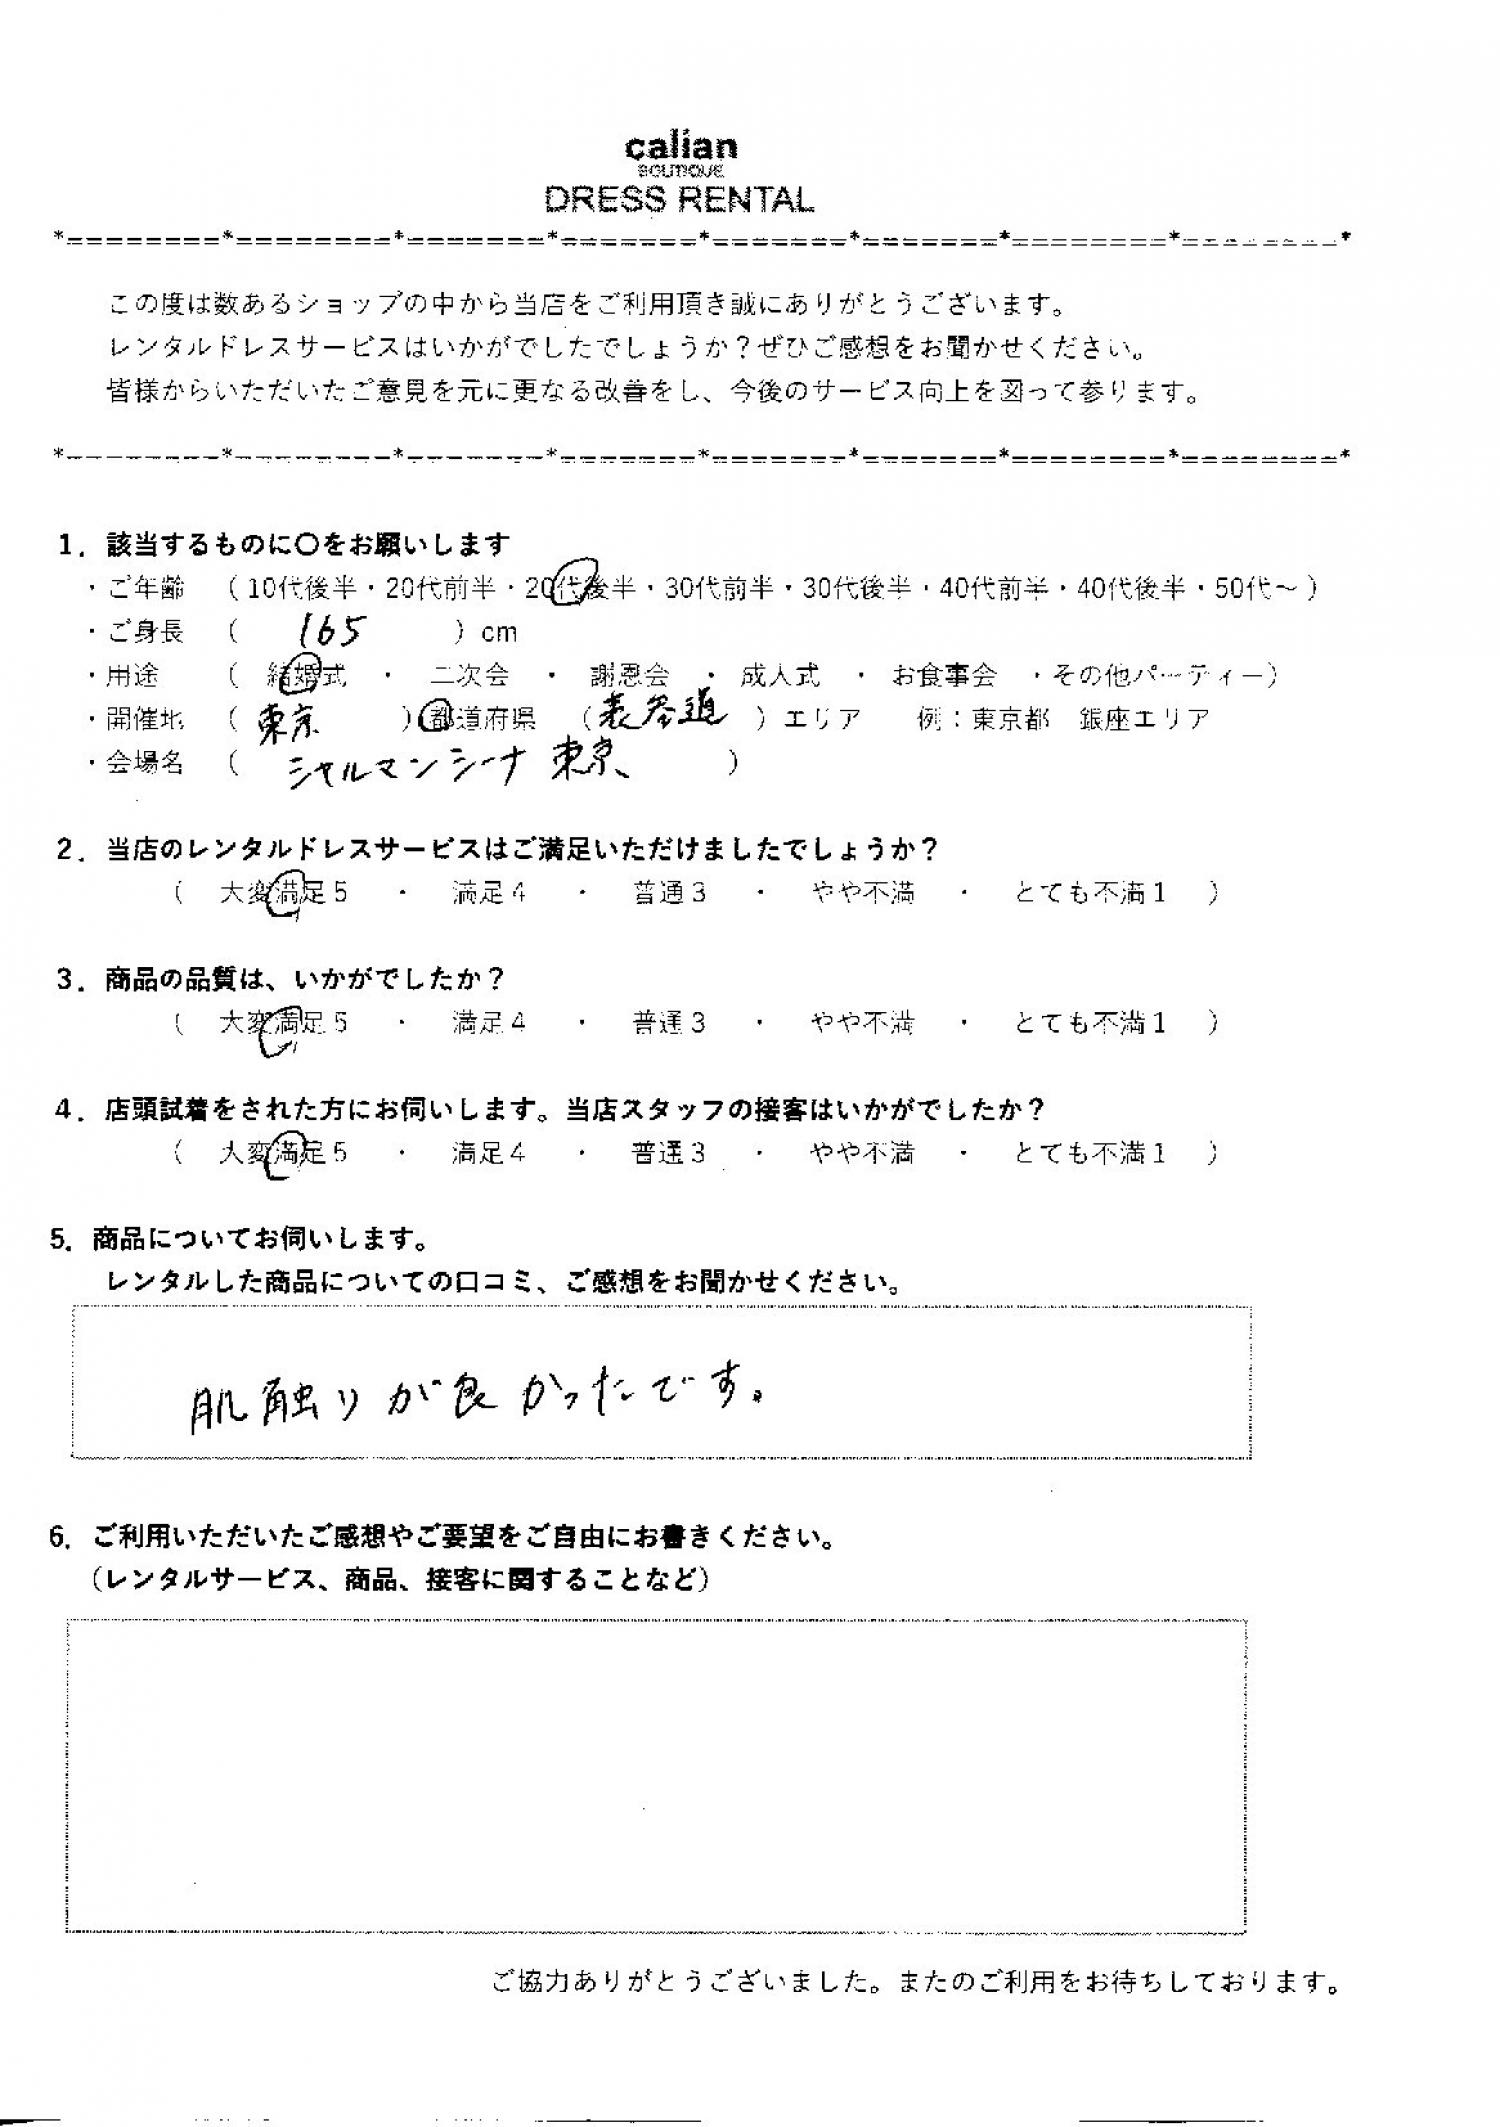 calian
BOUTIQUE
DRESS RENTAL
*========*========*=======*=======*=======*=======*========*========*
この度は数あるショップの中から当店をご利用頂き誠にありがとうございます。
レンタルドレスサービスはいかがでしたでしょうか？ぜひご感想をお聞かせください。
皆様からいただいたご意見を元に更なる改善をし、今後のサービス向上を図って参ります。
*========*========*=======*=======*=======*=======*========*========*
1．該当するものに〇をお願いします
・ご年齢 （10代後半・20代前半・20代後半・30代前半・30代後半・40代前半・40代後半・50代～）
・ご身長 （ 165 ）cm
・用途 （ 結婚式 ・ 二次会 ・ 謝恩会 ・ 成人式 ・ お食事会 ・その他パーティー）
・開催地 （ 東京 ）都道府県 （表参道 ）エリア 例：東京都 銀座エリア
・会場名 （ シャルマンシーナ 東京 ）
2．当店のレンタルドレスサービスはご満足いただけましたでしょうか？
（ 大変満足5 ・ 満足4 ・ 普通3 ・ やや不満 ・ とても不満1 ）
3．商品の品質は、いかがでしたか？
（ 大変満足5 ・ 満足4 ・ 普通3 ・ やや不満 ・ とても不満1 ）
4．店頭試着をされた方にお伺いします。当店スタッフの接客はいかがでしたか？
（ 大変満足5 ・ 満足4 ・ 普通3 ・ やや不満 ・ とても不満1 ）
5．商品についてお伺いします。
レンタルした商品についての口コミ、ご感想をお聞かせください。
肌触りが良かったです。
6．ご利用いただいたご感想やご要望をご自由にお書きください。
（レンタルサービス、商品、接客に関することなど）
ご協力ありがとうございました。またのご利用をお待ちしております。